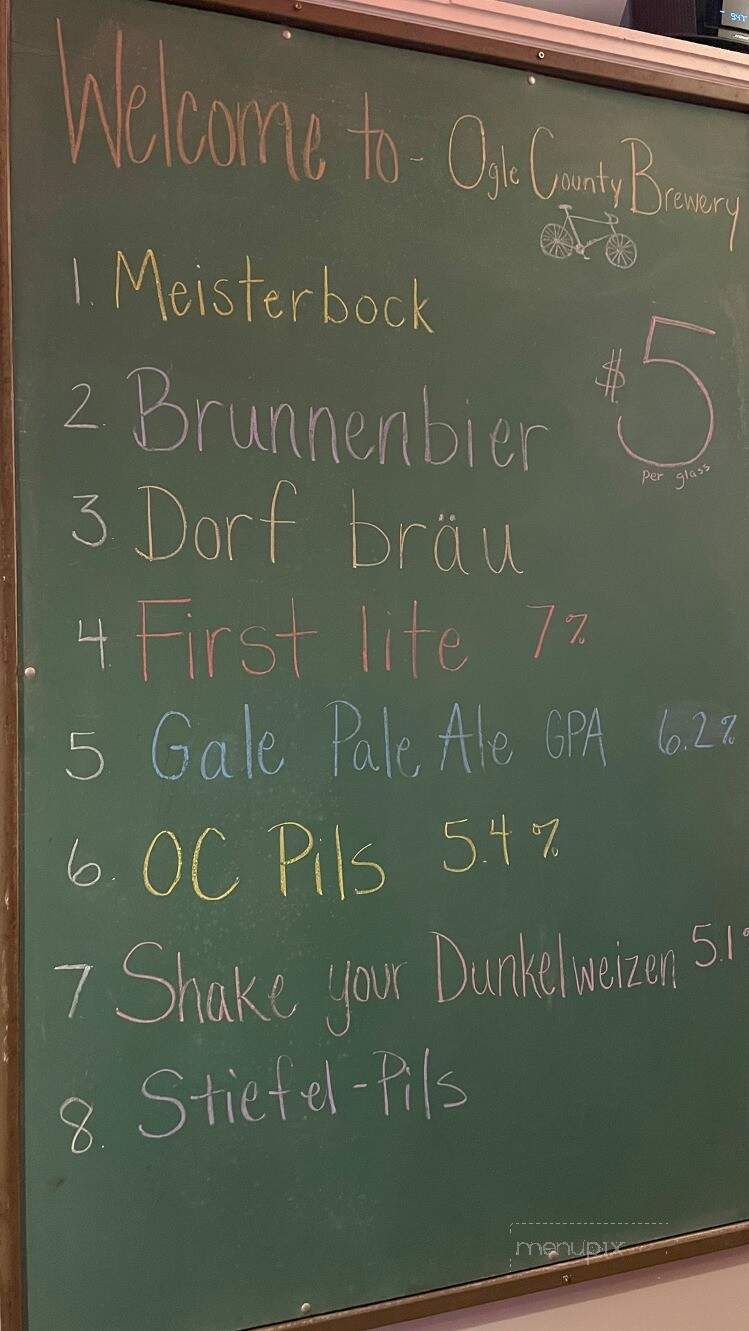 Welcome to - Ogle County Brewery
1. Meisterbock
$5
per glass
2. Brunnenbier
3. Dorf bräu
4. First lite 7%
5 Gale Pale Ale GPA 6.2%
6. OC Pils 5.4%
7 Shake your Dunkelweizen 5.1%
8. Stiefel-Pils
menupix